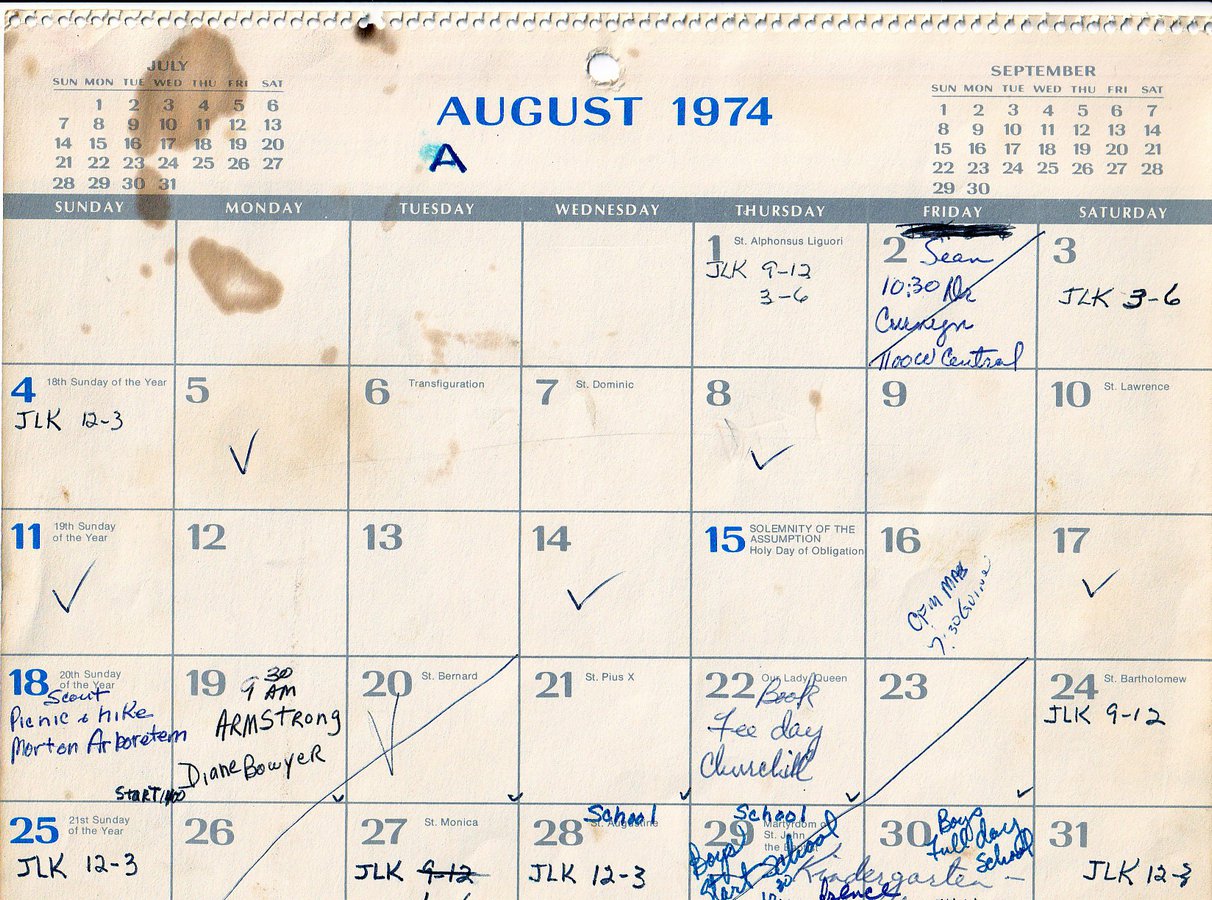 JULY
SUN MON TUE WED THU FRI SAT
1 2 3 4 5 6
7 8 9 10 11 12 13
14 15 16 17 18 19 20
21 22 23 24 25 26 27
28 29 30 31
AUGUST 1974
A
SEPTEMBER
SUN MON TUE WED THU FRI SAT
1 2 3 4 5 6 7
8 9 10 11 12 13 14
15 16 17 18 19 20 21
22 23 24 25 26 27 28
29 30
SUNDAY MONDAY TUESDAY WEDNESDAY THURSDAY FRIDAY SATURDAY
1 St. Alphonsus Liguori
JLK 9-12
3-6
2 Sean
10:30 Dr
Central
3
JLK 3-6
4 18th Sunday of the Year
JLK 12-3
5
6 Transfiguration
7 St. Dominic
8
9
10 St. Lawrence
11 19th Sunday
of the Year
12
13
14
15 SOLEMNITY OF THE
ASSUMPTION
Holy Day of Obligation
16
CFM
7:30
17
18 20th Sunday
of the Year
Scout
Picnic & Hike
Morton Arboretem
19 9 30
AM
ARMSTRONG
Diane Bowyer
START
20 St. Bernard
21 St. Pius X
22 Our Lady, Queen
Book
Fee day
Churchill
23
24 St. Bartholomew
JLK 9-12
25 21st Sunday
of the Year
JLK 12-3
26
27 St. Monica
JLK 9-12
28 School
St. Augustine
JLK 12-3
29 School
Martyrdom of
St. John
the
Boys
Start School
Kindergarten -
30 Boys
Full day
School
31
JLK 12-3